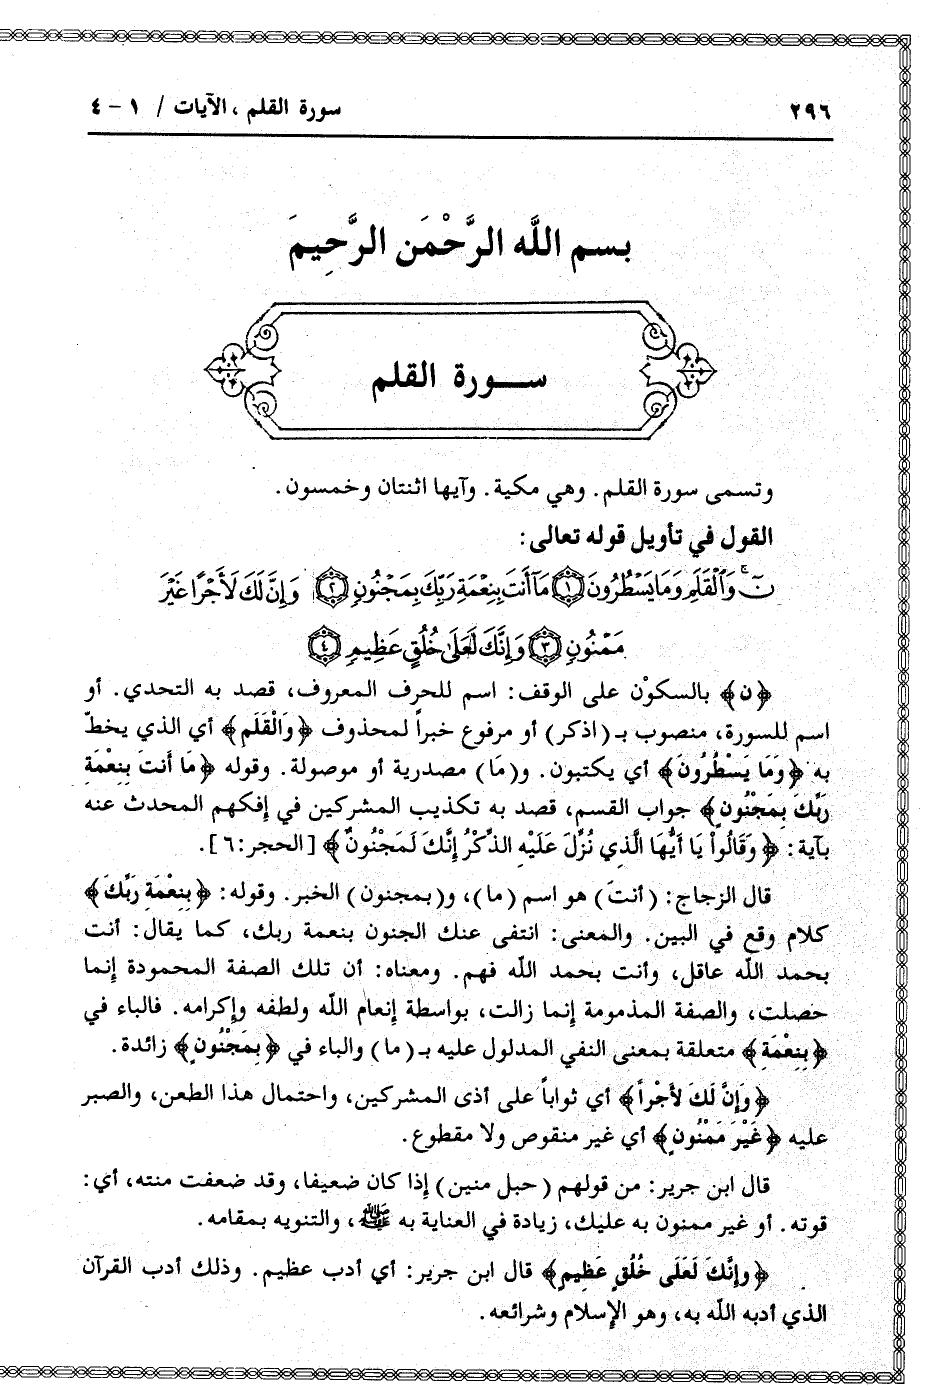 ٢٩٦
سورة القلم ، الآيات / ١ - ٤
بسم اللّه الرَّحْمَن الرَّحِيمَ
ســـورة القلم
وتسمى سورة القلم. وهي مكية. وآيها اثنتان وخمسون.
القول في تأويل قوله تعالى:
نٓ ۚ وَٱلْقَلَمِ وَمَا يَسْطُرُونَ ١ مَآ أَنتَ بِنِعْمَةِ رَبِّكَ بِمَجْنُونٍ ٢ وَإِنَّ لَكَ لَأَجْرًا غَيْرَ
مَمْنُونٍ ٣ وَإِنَّكَ لَعَلَىٰ خُلُقٍ عَظِيمٍ ٤
﴿ن﴾ بالسكوْن على الوقف: اسم للحرف المعروف، قصد به التحدي. أو
اسم للسورة، منصوب بـ(اذكر) أو مرفوع خبراً لمحذوف ﴿وَالْقَلَمِ﴾ أي الذي يخطّ
به ﴿وَمَا يَسْطُرُونَ﴾ أي يكتبون. و(مَا) مصدرية أو موصولة. وقوله ﴿مَا أَنتَ بِنِعْمَةِ
رَبِّكَ بِمَجْنُونٍ﴾ جواب القسم، قصد به تكذيب المشركين في إفكهم المحدث عنه
بآية: ﴿وَقَالُواْ يَا أَيُّهَا الَّذِي نُزِّلَ عَلَيْهِ الذِّكْرُ إِنَّكَ لَمَجْنُونٌ﴾ [الحجر:٦].
قال الزجاج: (أنتَ) هو اسم (ما)، و(بمجنون) الخبر. وقوله: ﴿بِنِعْمَةِ رَبِّكَ﴾
كلام وقع في البين. والمعنى: انتفى عنك الجنون بنعمة ربك، كما يقال: أنت
بحمد اللّه عاقل، وأنت بحمد اللّه فهم. ومعناه: أن تلك الصفة المحمودة إنما
حصلت، والصفة المذمومة إنما زالت، بواسطة إنعام اللّه ولطفه وإكرامه. فالباء في
﴿بِنِعْمَةِ﴾ متعلقة بمعنى النفي المدلول عليه بـ(ما) والباء في ﴿بِمَجْنُونٍ﴾ زائدة.
﴿وَإِنَّ لَكَ لأَجْراً﴾ أي ثواباً على أذى المشركين، واحتمال هذا الطعن، والصبر
عليه ﴿غَيْرَ مَمْنُونٍ﴾ أي غير منقوص ولا مقطوع.
قال ابن جرير: من قولهم (حبل منين) إذا كان ضعيفا، وقد ضعفت منته، أي:
قوته. أو غير ممنون به عليك، زيادة في العناية به ﷺ، والتنويه بمقامه.
﴿وإِنَّكَ لَعَلَى خُلُقٍ عَظِيمٍ﴾ قال ابن جرير: أي أدب عظيم. وذلك أدب القرآن
الذي أدبه اللّه به، وهو الإسلام وشرائعه.